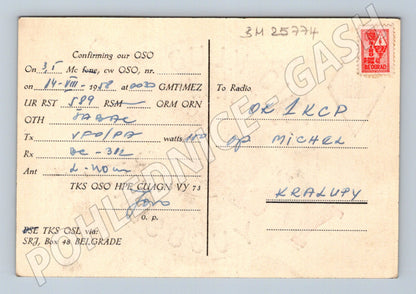 3M 25774
Confirming our OSO
On 3,5 Mc fone, cw OSO, nr.
on 14-VIII-1958 at GMT/MEZ
UR RST 589 RSM ORM ORN
OTH SABAC
Tx VFO/PA watts
Rx BC-312
Ant L-40m
TKS OSO HPE CUAGN VY 73
o. p.
PSE TKS OSL via:
SRJ, Box 48 BELGRADE
To Radio
OK1KCP
op MICHEL
KRALUPY
BEOGRAD
POHLEDNICE - GASH